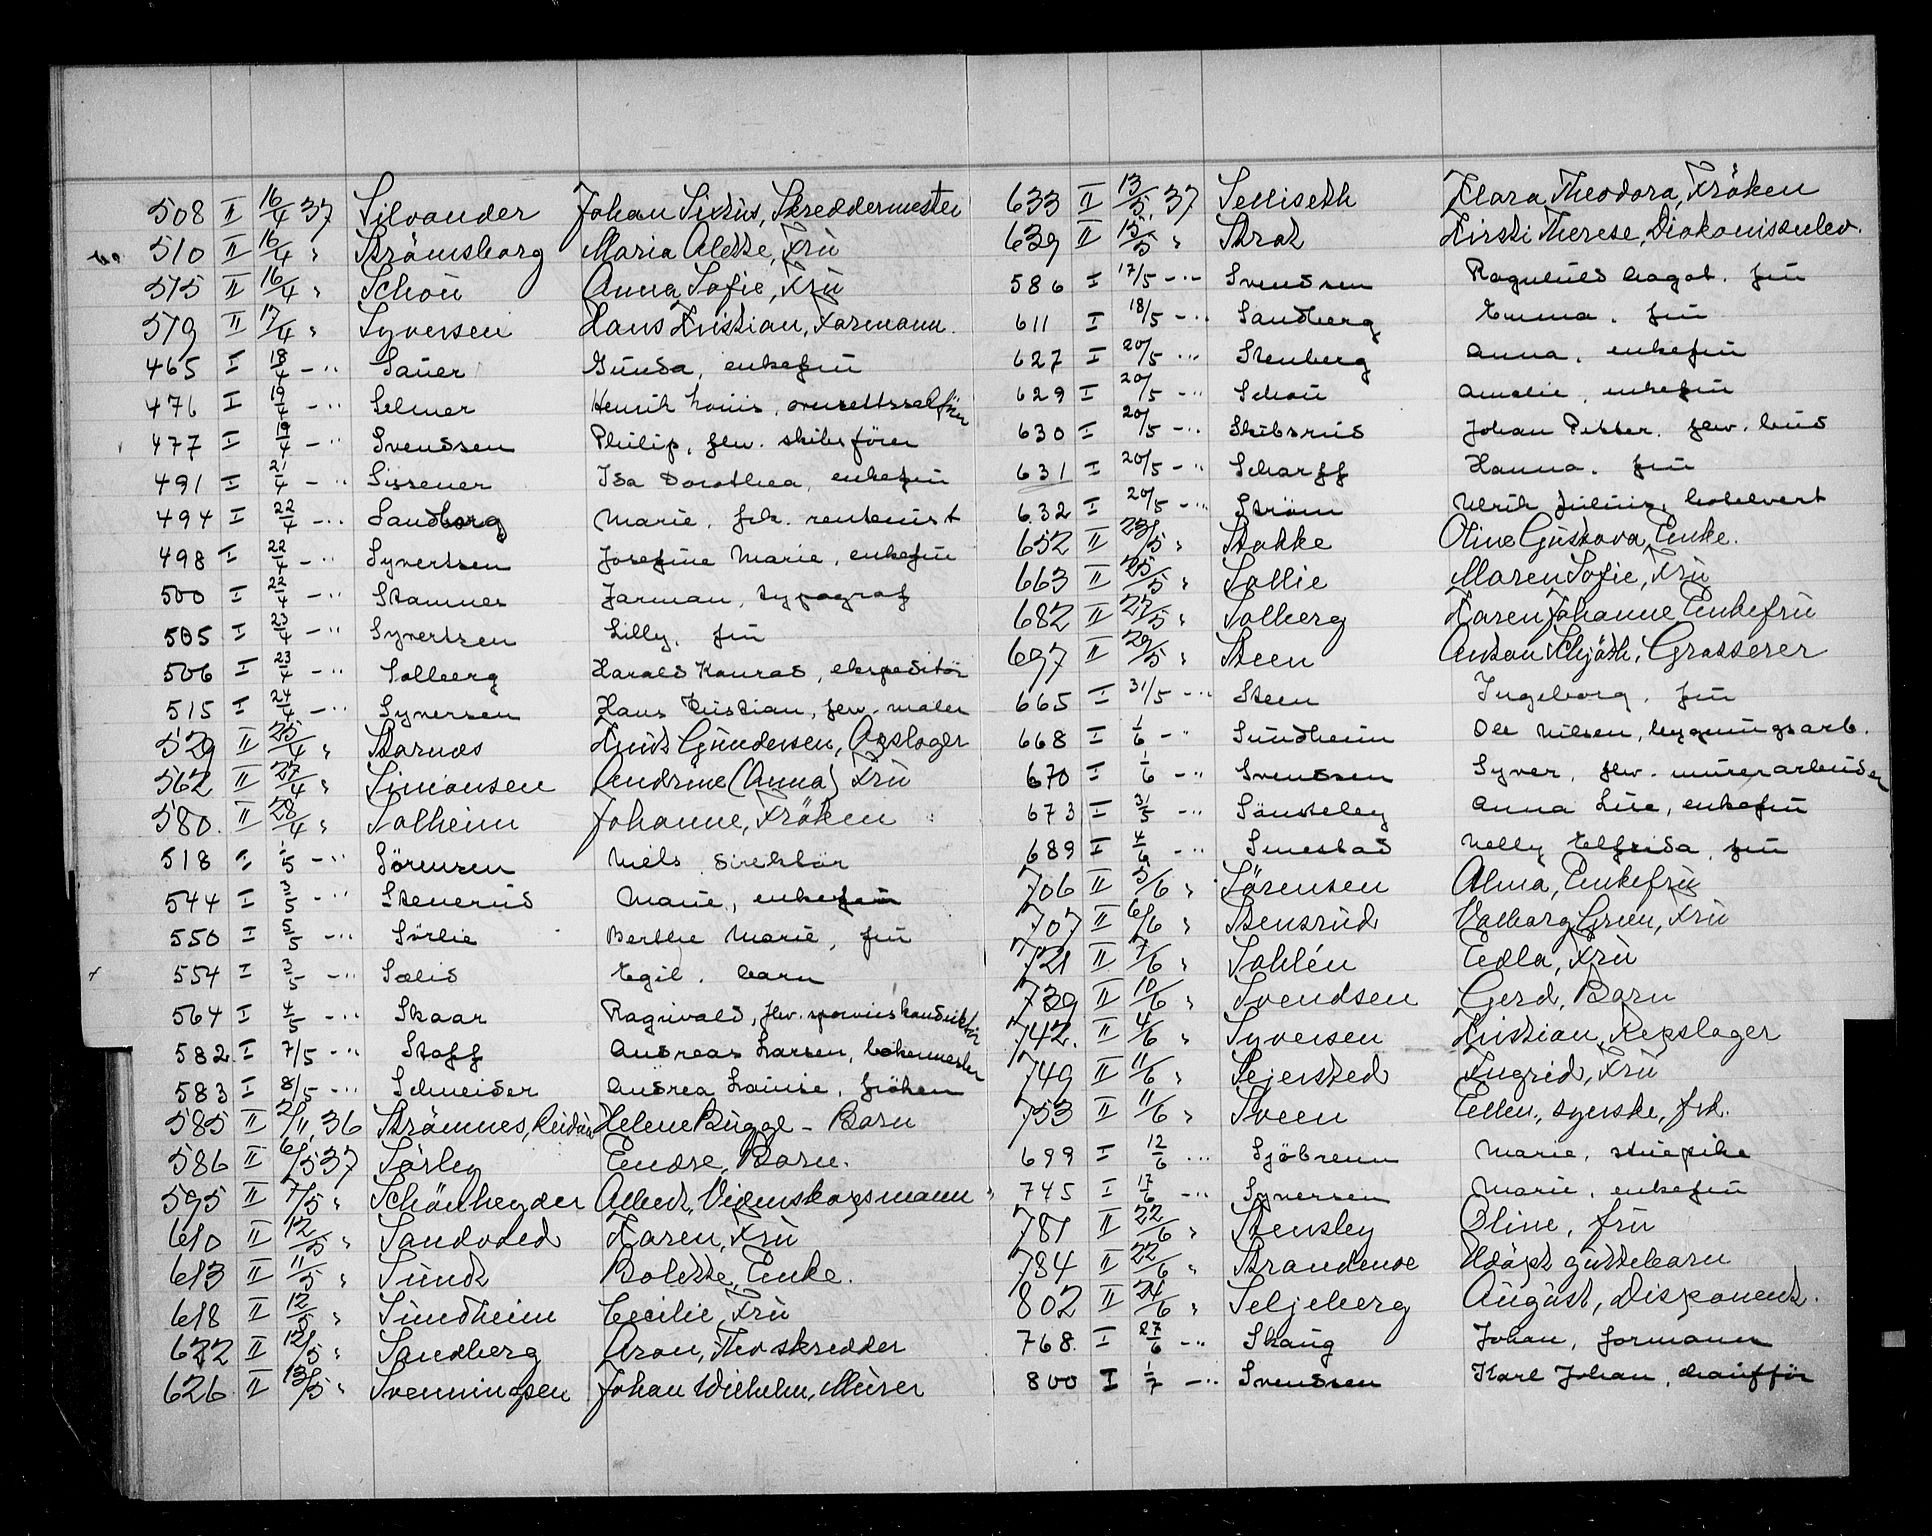 508 II 16/4 37 Silvander Johan Sixtus, Skreddermester
510 II 16/4 " Strömsborg Maria Alette, Frü
515 II 16/4 " Schou Anna Sofie, Frü
519 II 17/4 " Syversen Hans Kristian, Formann.
465 I 18/4 - " Sauer Gunda, enkefrü
476 I 19/4 - " Selmer Henrik Louis,
477 I 19/4 - " Svendsen Philip, fhv. skibsförer
491 I 21/4 - " Sissener Ida Dorothea, enkefrü
494 I 22/4 - " Sandborg Marie, frk. rentenist
498 I 22/4 - " Syvertsen Josefine Marie, enkefrü
500 I 22/4 - " Stamnes Jarman, typograf
505 I 23/4 - " Syvertsen Lilly, frü
506 I 23/4 - " Solberg Harald Konrad, ekspeditör
515 I 24/4 - " Syversen Hans Kristian, fhv. maler
529 II 25/4 " Starnæs Knut Gundersen, Opslager
562 II 27/4 " Simonsen Andrine (Anna) Frü
580. II 28/4 " Solheim Johanne, Fröken
518 I 1/5 - " Sörensen Niels direktör
544 I 3/5 - " Stenerud Marie, enkefrü
550 I 5/5 - " Sörlie Berthe Marie, frü
554 I 3/5 - " Sælid Egil, barn
564 I 4/5 - " Skaar Ragnvald, fhv. sporveiskonduktör
582. I 7/5 - " Stoff Andreas Larsen, bakermester
583 I 8/5 - " Schneider Andrea Louise, fröken
585 II 2/11 36 Strömnes, Reidun Helene Bugge - Barn
586 II 6/5 37 Sörby Endre, Barn.
595 II 7/5 " Schönheyder Albert, Videnskapsmann
610 II 12/5 " Sandvold Karen, Frü
613 II 11/5 " Sundt Bolette, Enke.
618 II 12/5 " Sundheim Cecilie, Frü
622 II 12/5 " Sandberg Aron, Fhv skredder
626 II 13/5 " Svenningsen Johan Wilhelm, Murer
633 II 13/5 37 Selliseth Klara Theodora, Fröken
639 II 15/5 " Strot Kirsti Therese, Diakonisselev.
586 I 17/5 - " Svendsen Ragnhild Dagot. frü
611 I 18/5 - " Sandberg Emma, frü
627 I 20/5 - " Stenberg Anna, enkefrü
629 I 20/5 - " Schou Amalie, enkefrü
630 I 20/5 - " Skibsrud Johan Petter, fhv. bud
631 I 20/5 - " Scharff Hanna, frü
632 I 20/5 - " Ström Ulrik Julius, hotelvert
652 II 23/5 " Stokke Oline Gustava, Enke.
663 II 25/5 " Sollie Maren Sofie, Frü
682 II 27/5 " Solberg Karen Johanne Enkefrü
697 II 29/5 " Steen Anton Schjöth, Grosserer
665 I 31/5 - " Steen Ingeborg, frü
668 I 1/6 - " Sundheim Ole Nilsen, bygningsarb.
670 I 1/6 - " Svendsen Syver, fhv. murerarbeider
673 I 31/5 - " Sönsteby Anna Lise, enkefrü
689 I 4/6 - " Smestad Nelly Elfrida, frü
706 II 5/6 " Sörensen Alma, Enkefrü
707 II 6/6 " Stensrud Valborg Green, Frü
721 II 7/6 " Sohlén Edla, Frü
739 II 10/6 " Svendsen Gerd, Barn
742. II 4/6 " Syversen Kristian, Repslager
749 II 11/6 " Sejersted Ingrid, Frü
753 II 11/6 " Sveen Ellen, syerske, frk.
699 I 12/6 - " Sjöbrenn Marie, stuepike
745 I 17/6 - " Syversen Marie, enkefrü
781 II 22/6 " Stensby Oline, frü
784 II 22/6 " Strandenoe Udöpt guttebarn
802 II 24/6 " Seljeberg August, Disponent.
768. I 27/6 - " Skaug Johan, formann
800 I 1/7 - " Svendsen Karl Johan, chaufför